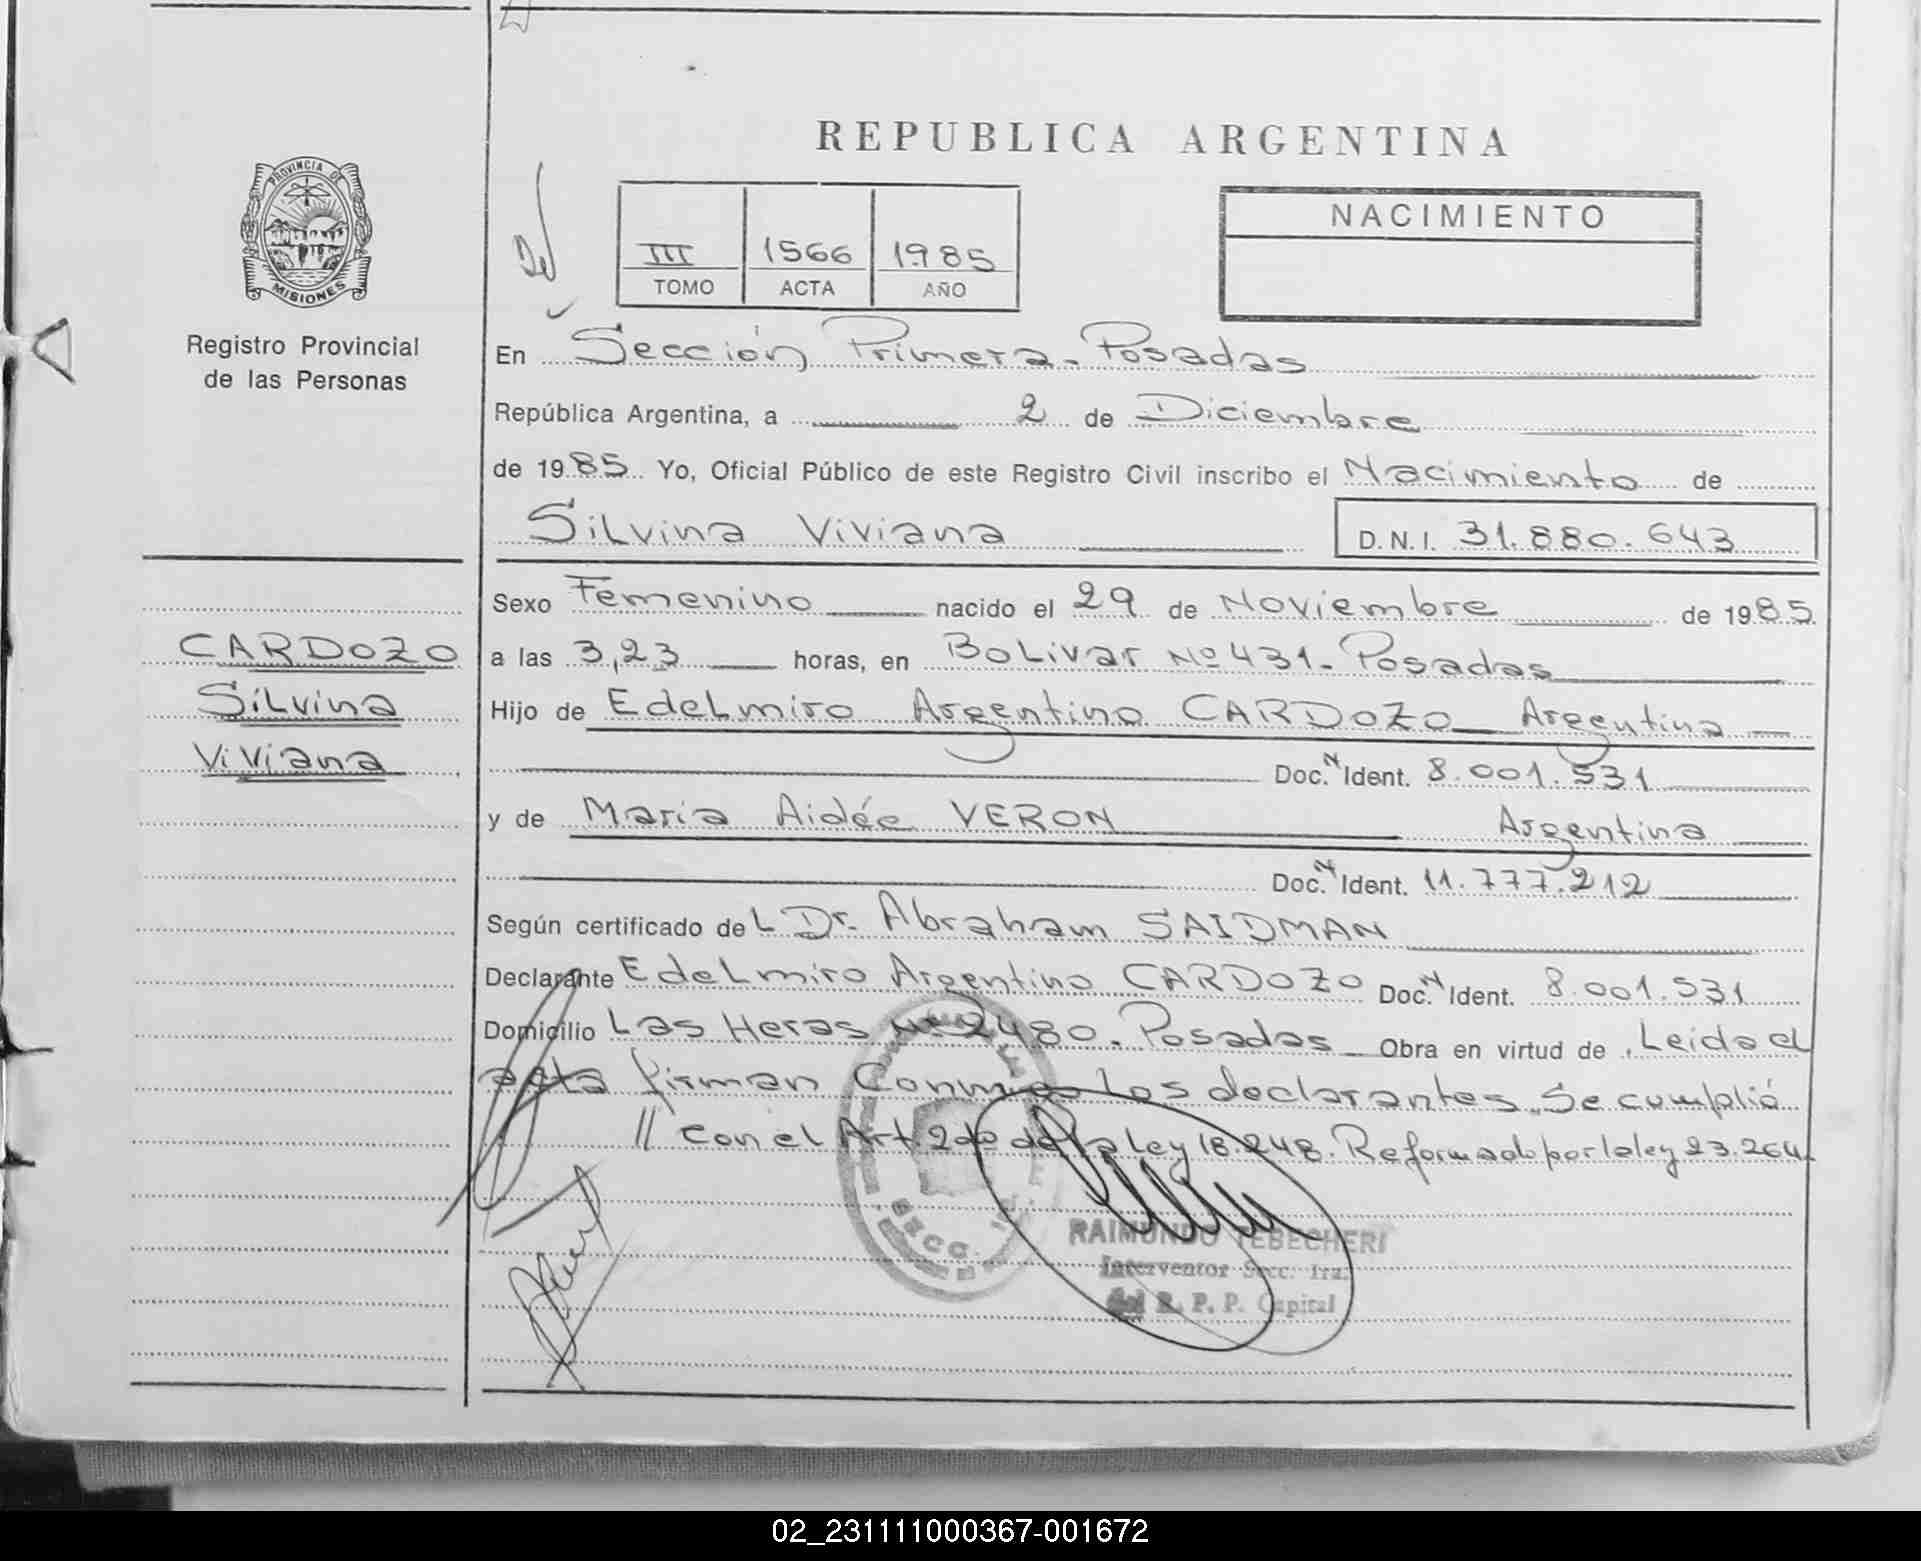 REPUBLICA ARGENTINA
PROVINCIA DE
MISIONES
Registro Provincial
de las Personas
III 1566 1985
TOMO ACTA AÑO
NACIMIENTO
En Sección Primera - Posadas
República Argentina, a 2 de Diciembre
de 1985 Yo, Oficial Público de este Registro Civil inscribo el Nacimiento de
Silvina Viviana D.N.I. 31.880.643
Sexo Femenino nacido el 29 de Noviembre de 1985
CARDOZO
Silvina
Viviana
a las 3,23 horas, en Bolivar Nº 431 - Posadas
Hijo de Edelmiro Argentino CARDOZO Argentina
Doc. N Ident. 8.001.531
y de Maria Aidée VERON Argentina
Doc. N Ident. 11.777.212
Según certificado del Dr. Abraham SAIDMAN
Declarante Edelmiro Argentino CARDOZO Doc. N Ident. 8.001.531
Domicilio Las Heras Nº 2480. Posadas Obra en virtud de . Leida el
acta firman Conmigo los declarantes. Se cumplió
// con el Art. 2do de la ley 18.248. Reformado por la ley 23.264.
RAIMUNDO TEBECHERI
Interventor Secc. 1ra.
del R. P. P. Capital
02_231111000367-001672